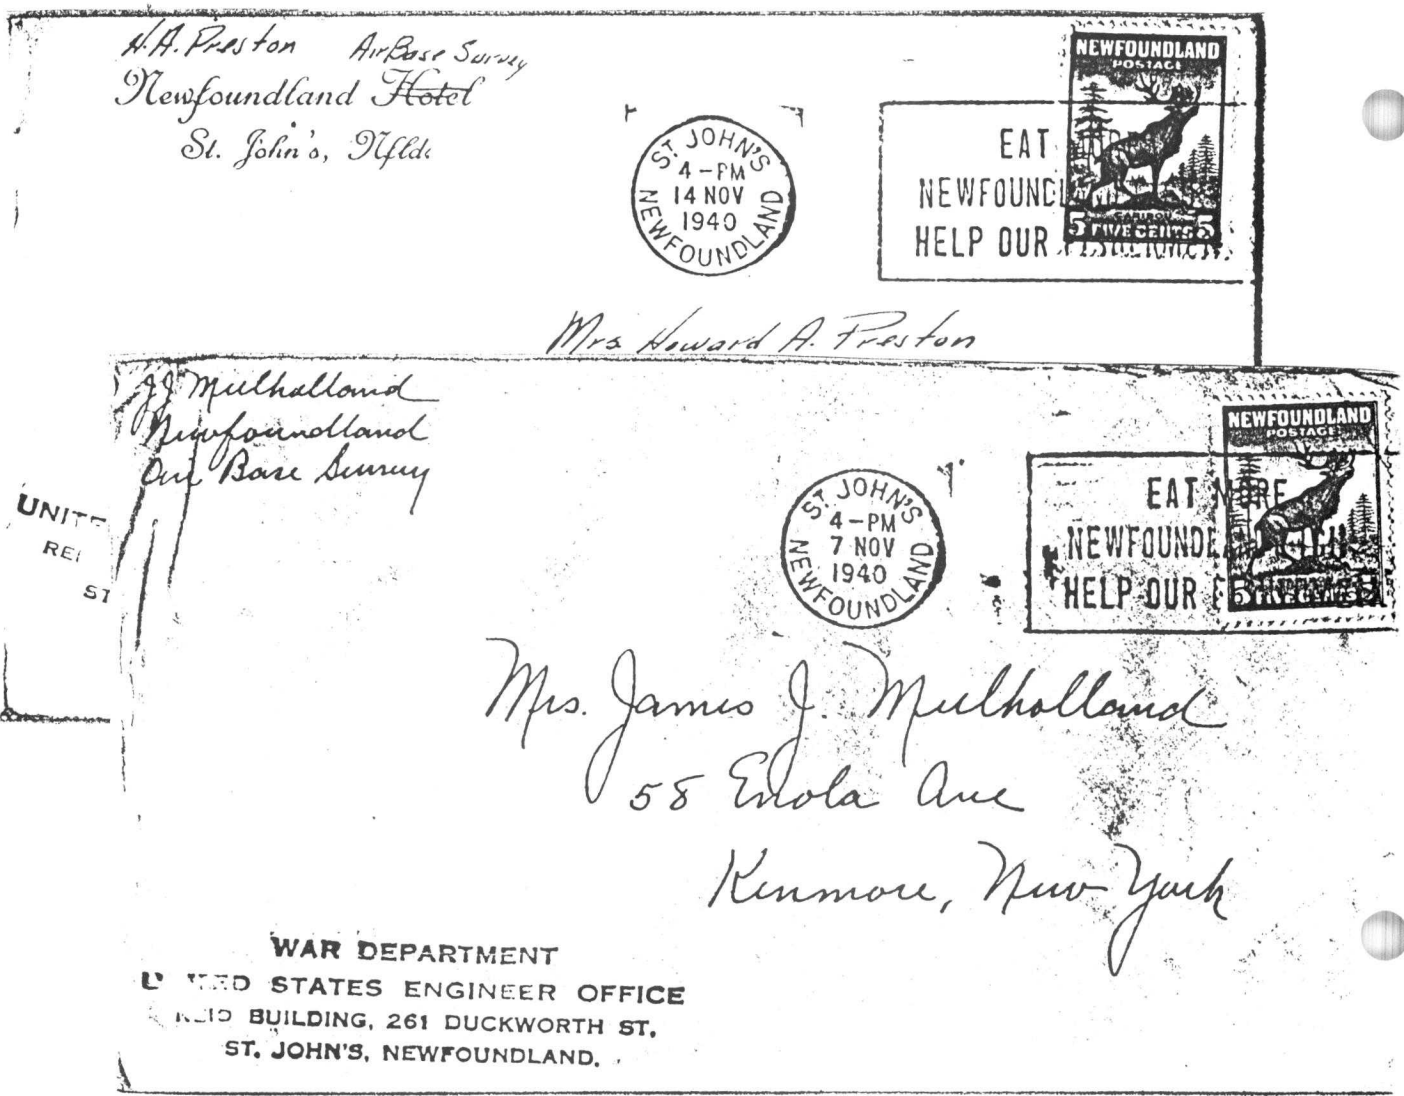 H.A. Preston Air Base Survey
Newfoundland Hotel
St. John's, Nfld.
ST. JOHN'S
4-PM
14 NOV
1940
NEWFOUNDLAND
EAT
NEWFOUNDL
HELP OUR
NEWFOUNDLAND
POSTAGE
CARIBOU
5 FIVE CENTS 5
Mrs Howard A. Preston
JJ Mulholland
Newfoundland
Air Base Survey
UNITE
REI
ST
ST. JOHN'S
4-PM
7 NOV
1940
NEWFOUNDLAND
EAT MORE
NEWFOUNDLAND
HELP OUR
NEWFOUNDLAND
POSTAGE
5 FIVE CENTS 5
Mrs. James J. Mulholland
58 Enola Ave
Kenmore, New York
WAR DEPARTMENT
STATES ENGINEER OFFICE
BUILDING, 261 DUCKWORTH ST.
ST. JOHN'S, NEWFOUNDLAND.